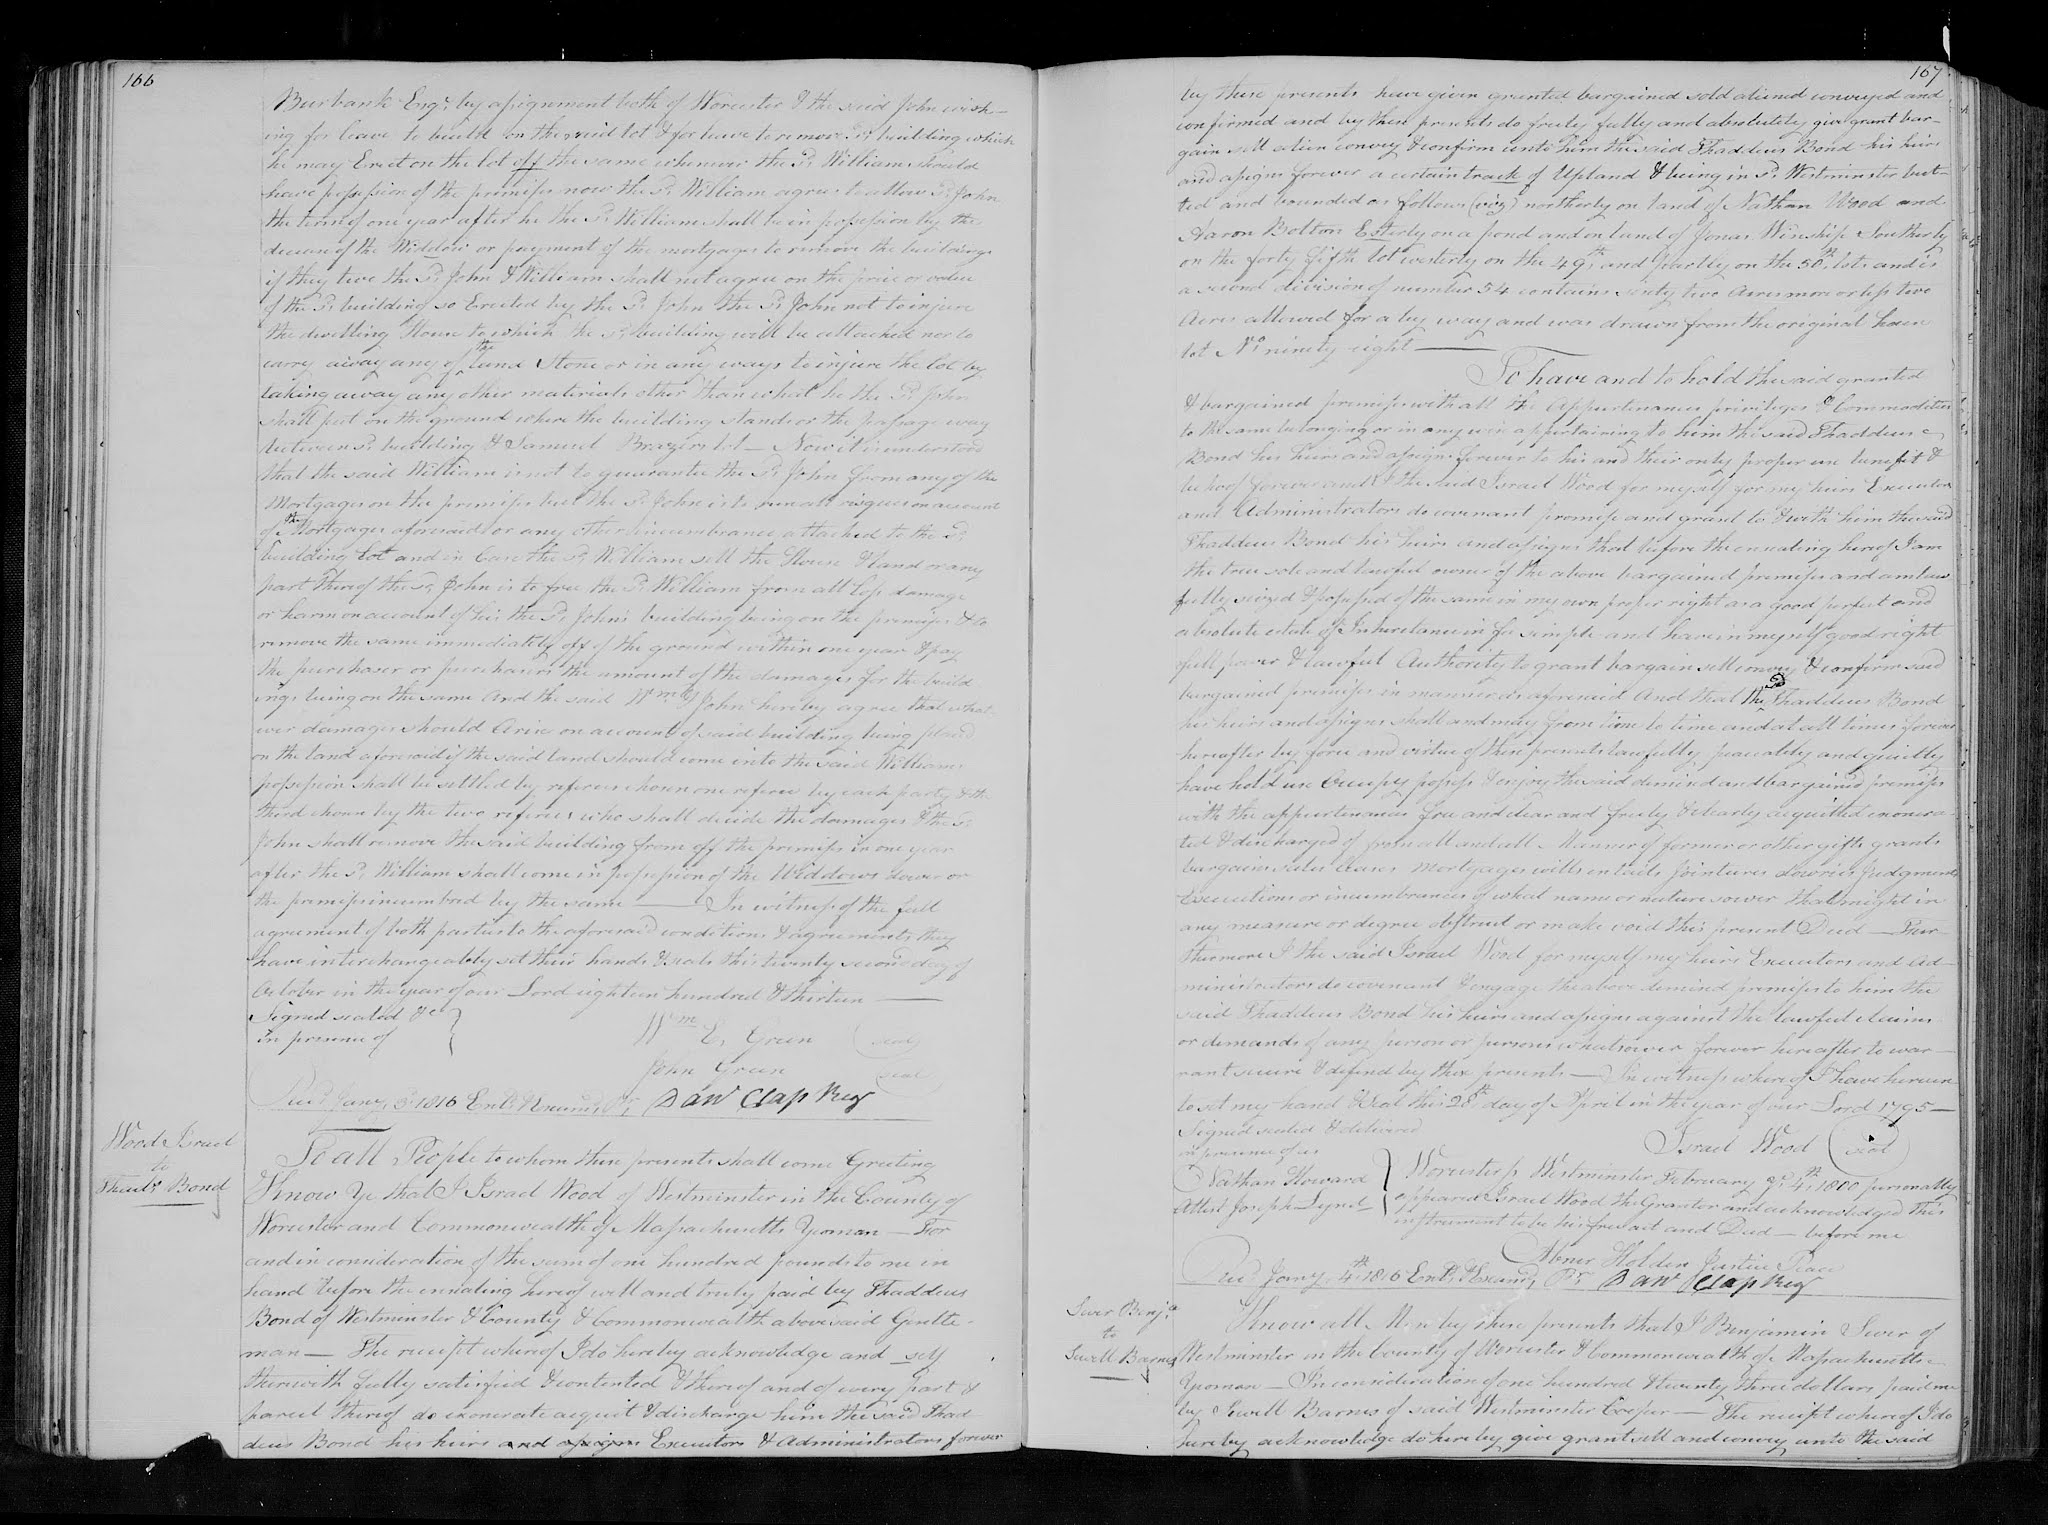 166
Burbank Esqr. by assignment both of Worcester & the said John wish-
ing for leave to build on the said lot & for leave to remove sd. building which
he may Erect on the lot off the same whenever the sd. William should
have possession of the premises now the sd. William agrees to allow sd. John
the term of one year after he the sd. William shall be in possession by the
decease of the Widdow or payment of the mortgages to remove the buildings
if they two the sd. John & William shall not agree on the price or value
of the sd. building so Erected by the sd. John the sd. John not to injure
the dwelling House to which the sd. building will be attached nor to
carry away any of the land Stone or in any ways to injure the lot by
taking away any other materials other than what he the sd. John
shall put on the ground where the building stands or the passage way
between sd. building & Samuel Brazers lot — Now it is understood
that the said William is not to guarantee the sd. John from any of the
Mortgages on the premises but the sd. John is to run all risques on account
of the Mortgages aforesaid or any other incumbrance attached to the sd.
building lot and in Case the sd. William sell the House & land or any
part thereof the sd. John is to free the sd. William from all loss damage
or harm on account of his the sd. John's building being on the premises & to
remove the same immediately off of the ground within one year & pay
the purchaser or purchasers the amount of the damages for the build
ings being on the same And the said Wm & John hereby agree that what-
ever damages should Arise on account of said building being placed
on the land aforesaid if the said land should come into the said Williams
possession shall be settled by referees chosen one referee by each party & the
third chosen by the two referees who shall decide the damages & the sd.
John shall remove the said building from off the premises in one year
after the sd. William shall come in possession of the Widdows dower or
the premises incumbred by the same — In witness of the full
agreement of both parties to the aforesaid conditions & agreements they
have interchangeably set their hands & seals this twenty second day of
October in the year of our Lord eighteen hundred & thirteen —
Signed sealed &c
in presence of
Wm E. Green (seal)
John Green (seal)
Recd. Jany. 3d. 1816 Entd. & Examd. Pr. Danl Clap Reg
Wood Israel
to
Thadds Bond
To all People to whom these presents shall come Greeting
Know Ye that I Israel Wood of Westminster in the County of
Worcester and Commonwealth of Massachusetts Yeoman — For
and in consideration of the sum of one hundred pounds to me in
hand before the ensealing hereof well and truly paid by Thaddeus
Bond of Westminster & County & Commonwealth above said Gentle-
man — The receipt whereof I do hereby acknowledge and self
therewith fully satisfied & contented & thereof and of every part &
parcel thereof do exonerate acquit & discharge him the said Thad
deus Bond his heirs and assigns Executors & Administrators forever
167
by these presents have given granted bargained sold aliened conveyed and
confirmed and by these presents do freely fully and absolutely give grant bar-
gain sell alien convey & confirm unto him the said Thaddeus Bond his heirs
and assigns forever a certain track of Upland & being in sd. Westminster but-
ted and bounded as follows (viz) northerly on land of Nathan Wood and
Aaron Bolton Esterly on a pond and on land of Jonas Winship Southerly
on the forty fifth lot westerly on the 49th. and partly on the 50th. lots and is
a second division of number 54 contains sixty two Acres more or less two
Acres allowed for a by way and was drawn from the original house
lot No. ninety eight —
To have and to hold the said granted
& bargained premises with all the Appurtenances privileges & Commodities
to the same belonging or in any wise appertaining to him the said Thaddeus
Bond his heirs and assigns forever to his and their only proper use benefit &
behoof forever and I the said Israel Wood for myself for my heirs Executors
and Administrators do covenant promise and grant to & with him the said
Thaddeus Bond his heirs and assigns that before the ensealing hereof I am
the true sole and lawful owner of the above bargained premises and am law
fully seized & possessed of the same in my own proper right as a good perfect and
absolute estate of Inheritance in fee simple and have in myself good right
full power & lawful Authority to grant bargain sell convey & confirm said
bargained premises in manner as aforesaid And that the sd Thaddeus Bond
his heirs and assigns shall and may from time to time and at all times forever
hereafter by force and virtue of these presents lawfully peaceably and quietly
have hold use Occupy possess & enjoy the said demised and bargained premises
with the appurtenances free and clear and freely & clearly acquitted exonera-
ted & discharged of from all and all Manner of former or other gifts grants
bargains sales leases Mortgages wills entails Jointures dowries Judgments
Executions or incumbrances of what name or nature soever that might in
any measure or degree obstruct or make void this present Deed — Fur-
thermore I the said Israel Wood for myself my heirs Executors and Ad-
ministrators do covenant & engage the above demised premises to him the
said Thaddeus Bond his heirs and assigns against the lawful claims
or demands of any person or persons whatsoever forever hereafter to war-
rant secure & defend by these presents — In witness whereof I have hereun
to set my hand & seal this 28th day of April in the year of our Lord 1795 —
Signed sealed & delivered
in presence of us
Israel Wood (seal)
Nathan Howard
Attest Joseph Lynd
Worcester ss Westminster February ye. 4th. 1800 personally
appeared Israel Wood the Grantor and acknowledged This
instrument to be his free act and Deed — before me
Abner Holden Justice Peace
Recd. Jany. 4th. 1816 Entd. & Examd. Pr. Danl Clap Reg
Sever Benja.
to
Sewell Barnes
Know all Men by these presents that I Benjamin Sever of
Westminster in the County of Worcester & Commonwealth of Massachusetts
Yeoman — In consideration of one hundred & twenty three dollars paid me
by Sewell Barnes of said Westminster Cooper — The receipt whereof I do
hereby acknowledge do hereby give grant sell and convey unto the said